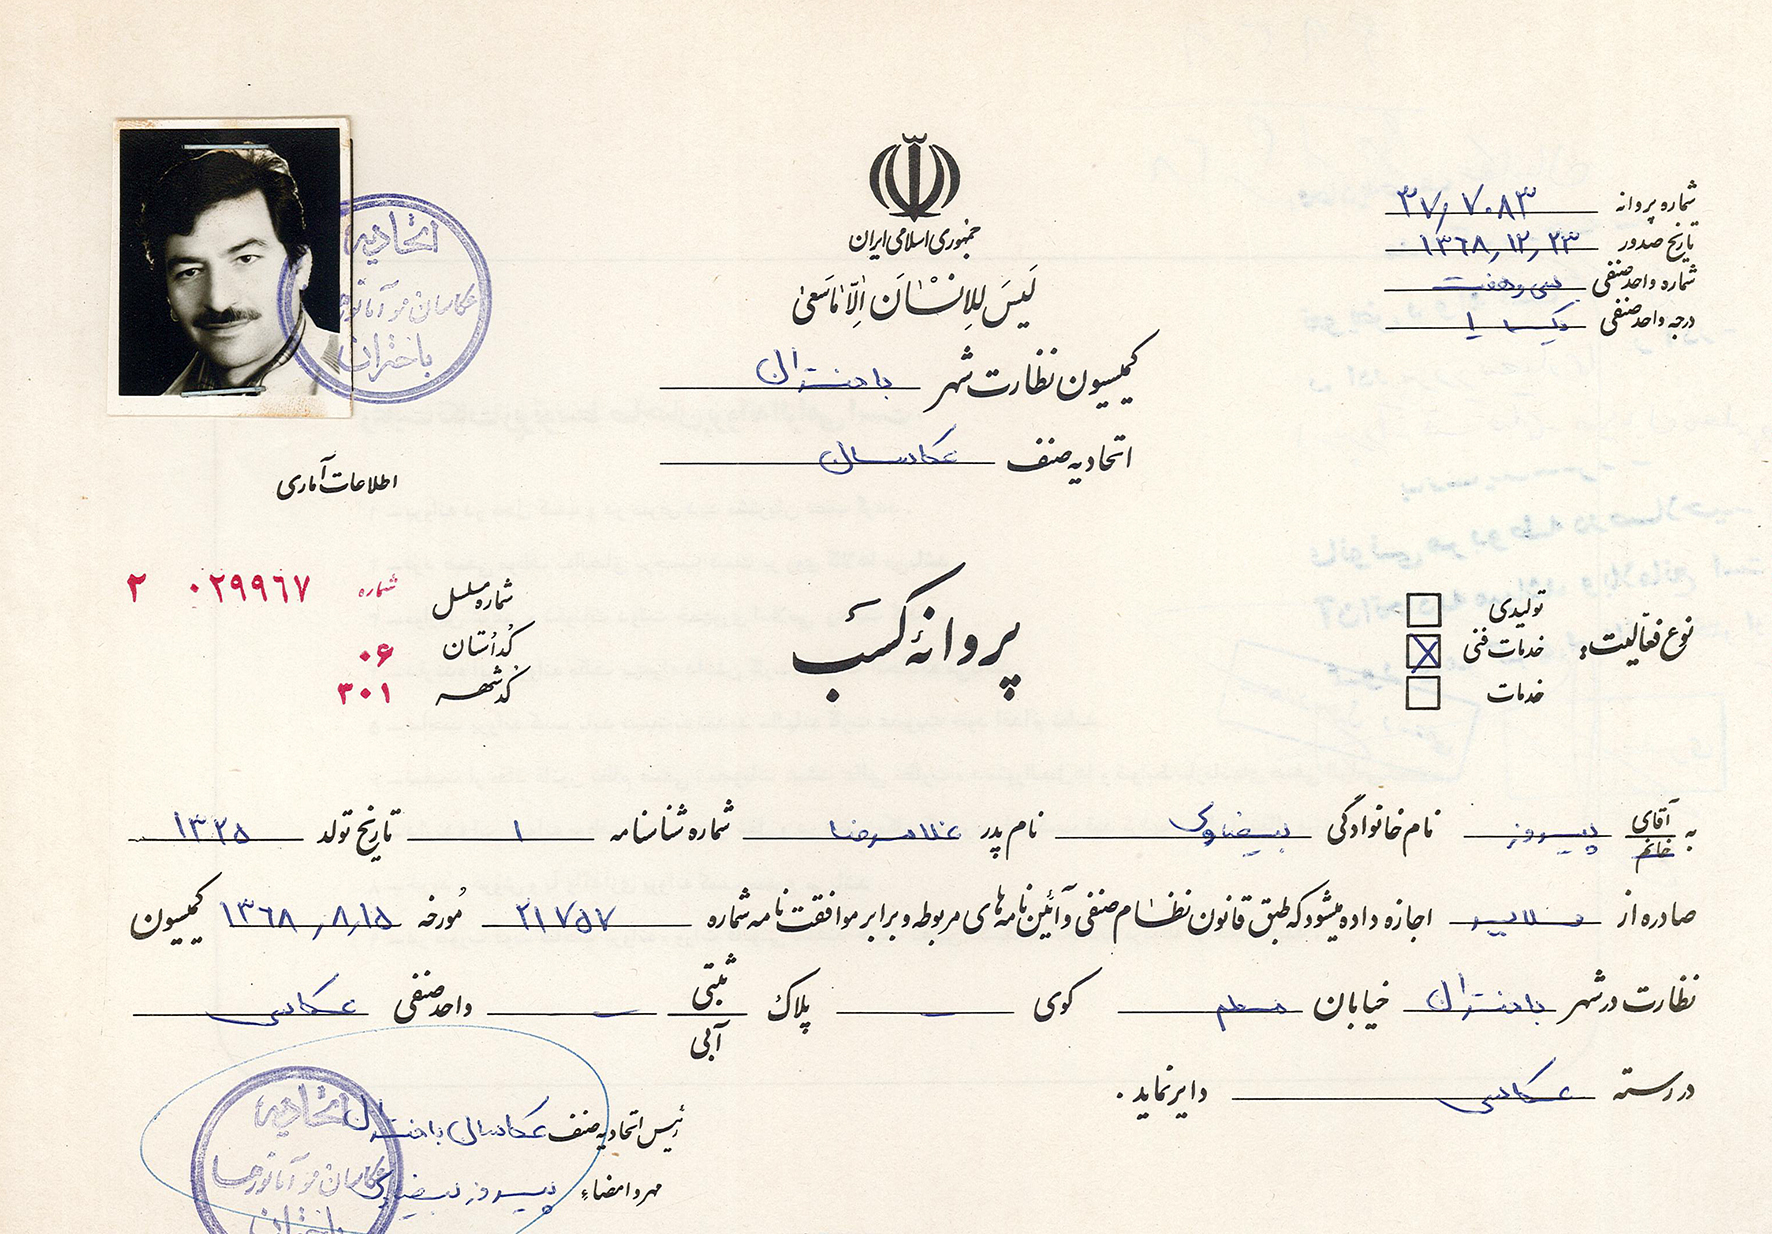 شماره پروانه ۳۷/۷۰۸۳
تاریخ صدور ۱۳۶۸/۱۲/۲۳
شماره واحد صنفی سی و هفت
درجه واحد صنفی یک ۱
جمهوری اسلامی ایران
لَیسَ لِلاِنْسَانَ اِلّا مٰا سَعیٰ
کمیسیون نظارت شهر باختران
اتحادیه صنف عکاسان
اتحادیه
عکاسان و آماتورها
باختران
اطلاعات آماری
شماره مسلسل شماره ۰۲۹۹۶۷ ۲
کد استان ۰۶
کد شهر ۳۰۱
پروانهٔ کسب
نوع فعالیت:
تولیدی
خدمات فنی
خدمات
به آقای خانم پیروز نام خانوادگی بیضاوی نام پدر غلامرضا شماره شناسنامه ۱ تاریخ تولد ۱۳۲۵
صادره از ملایر اجازه داده میشود که طبق قانون نظام صنفی و آئین نامه های مربوطه و برابر موافقت نامه شماره ۲۱۷۵۷ مورخه ۱۳۶۸/۸/۱۵ کمیسیون
نظارت در شهر باختران خیابان معلم کوی ــ پلاک ثبتی آبی ــ واحد صنفی عکاسی
در رسته عکاسی دایر نماید.
رئیس اتحادیه صنف عکاسان باختران
مهر و امضاء پیروز بیضاوی
اتحادیه
عکاسان و آماتورها
باختران